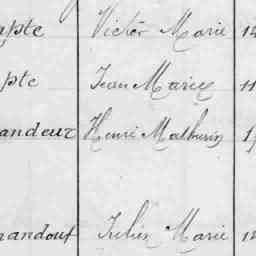 apte Victor Marie 12
pte Jean Marie 11
andeur Henri Mathurin 1
nandouf Julien Marie 12